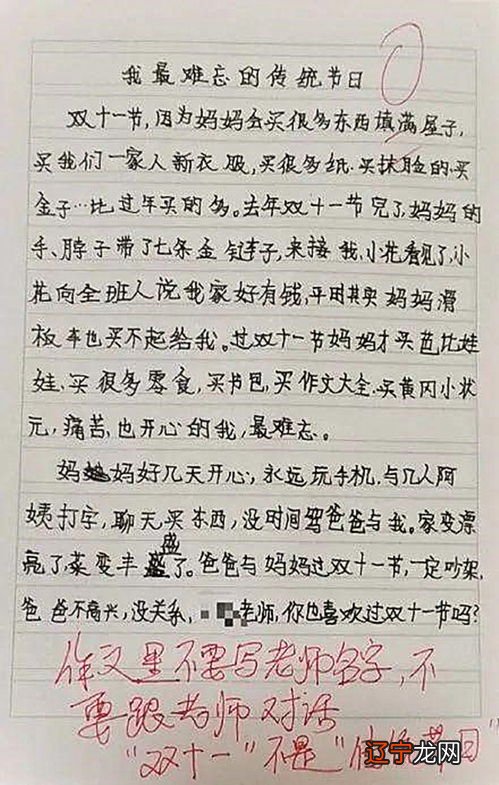 我最难忘的传统节日
双十一节,因为妈妈会买很多东西填满屋子,
买我们一家人新衣服,买很多纸.买抹脸的.买
金子…比过年买的多。去年双十一节完了,妈妈的
手、脖子带了七条金链子,来接我,小花看见了,小
花向全班人说我家好有钱,平时其实妈妈滑
板车也买不起给我。过双十一节妈妈才买芭比娃
娃、买很多零食,买书包,买作文大全.买黄冈小状
元,痛苦、也开心的我,最难忘。
妈妈好几天开心,永远玩手机,与几人阿
姨打字,聊天买东西,没时间骂爸爸与我。家变漂
亮了,菜变丰盛了。爸爸与妈妈过双十一节,一定吵架,
爸爸不高兴,没关系,老师,你也喜欢过双十一节吗?
作文里不要写老师名字,不
要跟老师对话
"双十一"不是"传统节日"
辽宁龙网